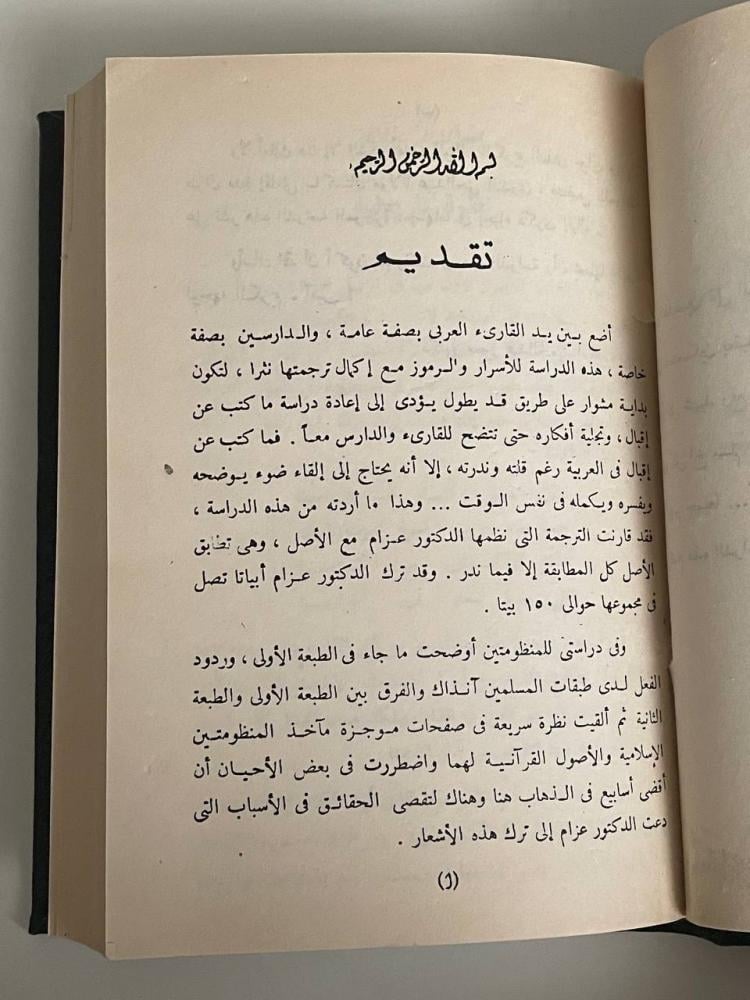 بسم الله الرحمن الرحيم
تقديم
أضع بين يد القارىء العربى بصفة عامة ، والدارسين بصفة
خاصة ، هذه الدراسة للأسرار والرموز مع إكمال ترجمتها نثرا ، لتكون
بداية مشوار على طريق قد يطول يؤدى إلى إعادة دراسة ما كتب عن
إقبال ، وتجلية أفكاره حتى تتضح للقارىء والدارس معاً . فما كتب عن
إقبال فى العربية رغم قلته وندرته ، إلا أنه يحتاج إلى إلقاء ضوء يوضحه
ويفسره ويكمله فى نفس الوقت ... وهذا ما أردته من هذه الدراسة ،
فقد قارنت الترجمة التى نظمها الدكتور عزام مع الأصل ، وهى تطابق
الأصل كل المطابقة إلا فيما ندر . وقد ترك الدكتور عزام أبياتا تصل
فى مجموعها حوالى ١٥٠ بيتا .
وفى دراستى للمنظومتين أوضحت ما جاء فى الطبعة الأولى ، وردود
الفعل لدى طبقات المسلمين آنذاك والفرق بين الطبعة الأولى والطبعة
الثانية ثم ألقيت نظرة سريعة فى صفحات موجزة مآخذ المنظومتين
الإسلامية والأصول القرآنية لهما واضطررت فى بعض الأحيان أن
أقضى أسابيع فى الذهاب هنا وهناك لتقصى الحقائق فى الأسباب التى
دعت الدكتور عزام إلى ترك هذه الأشعار .
(أ)